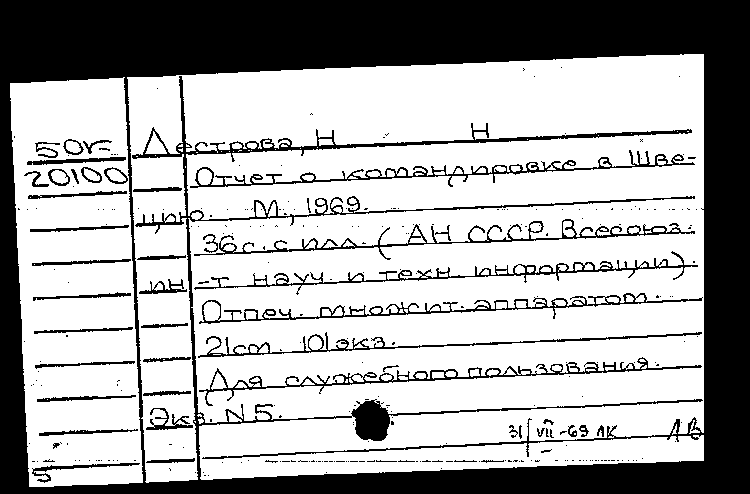 50г- Лестрова, Н Н
20100 Отчет о командировке в Шве-
цию. М., 1969.
36 с. с илл. (АН СССР. Всесоюз.
ин-т науч. и техн. информации).
Отпеч. множит. аппаратом.
21 см. 101 экз.
Для служебного пользования.
Экз. N 5.
31/VII-69 ЛК ЛВ
5